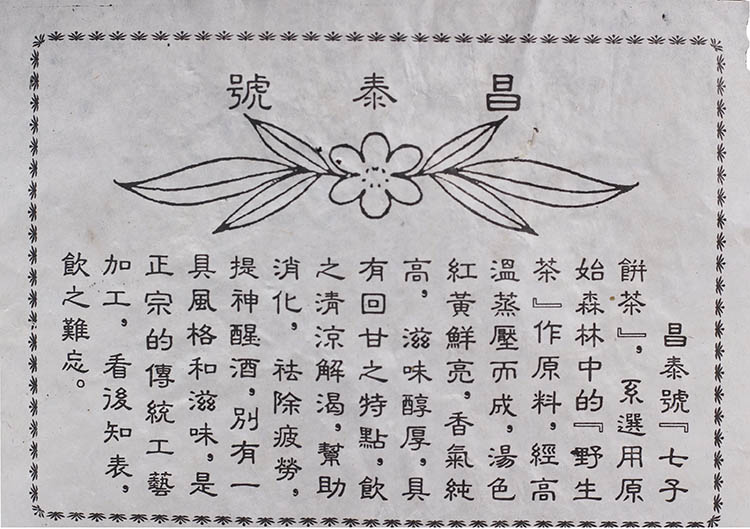 昌泰號
昌泰號『七子
餅茶』，系選用原
始森林中的『野生
茶』作原料，經高
溫蒸壓而成，湯色
紅黃鮮亮，香氣純
高，滋味醇厚，具
有回甘之特點，飲
之清涼解渴，幫助
消化，祛除疲勞，
提神醒酒，別有一
具風格和滋味，是
正宗的傳統工藝
加工，看後知表，
飲之難忘。